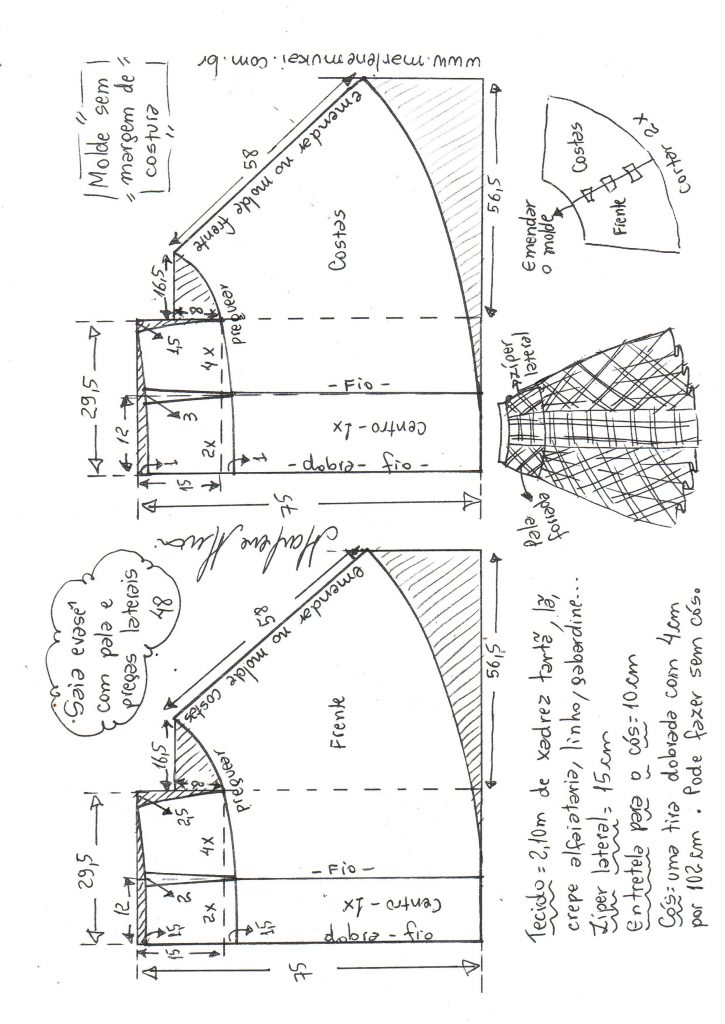 "Saia evasê"
com pala e
pregas laterais
48
"Molde sem
margem de
costura"
www.marlenemukai.com.br
29,5
12
16,5
8
2,5
2
1,5
1,5
15
2x
4x
75
58
56,5
emendar no molde costas
preguear
Frente
- Fio -
Centro - 1x
dobra - fio
29,5
12
16,5
8
1,5
3
1
1
15
2x
4x
75
58
56,5
emendar no molde frente
preguear
Costas
- Fio -
Centro - 1x
- dobra - fio -
Tecido = 2,10m de xadrez tartã, lã,
crepe alfaiataria, linho, gabardine...
Ziper lateral = 15cm
Entretela para o cós = 10cm
Cós = uma tira dobrada com 4cm
por 102cm. Pode fazer sem cós.
Pala
forrada
zíper
lateral
Emendar
o molde
Costas
Frente
Cortar 2x